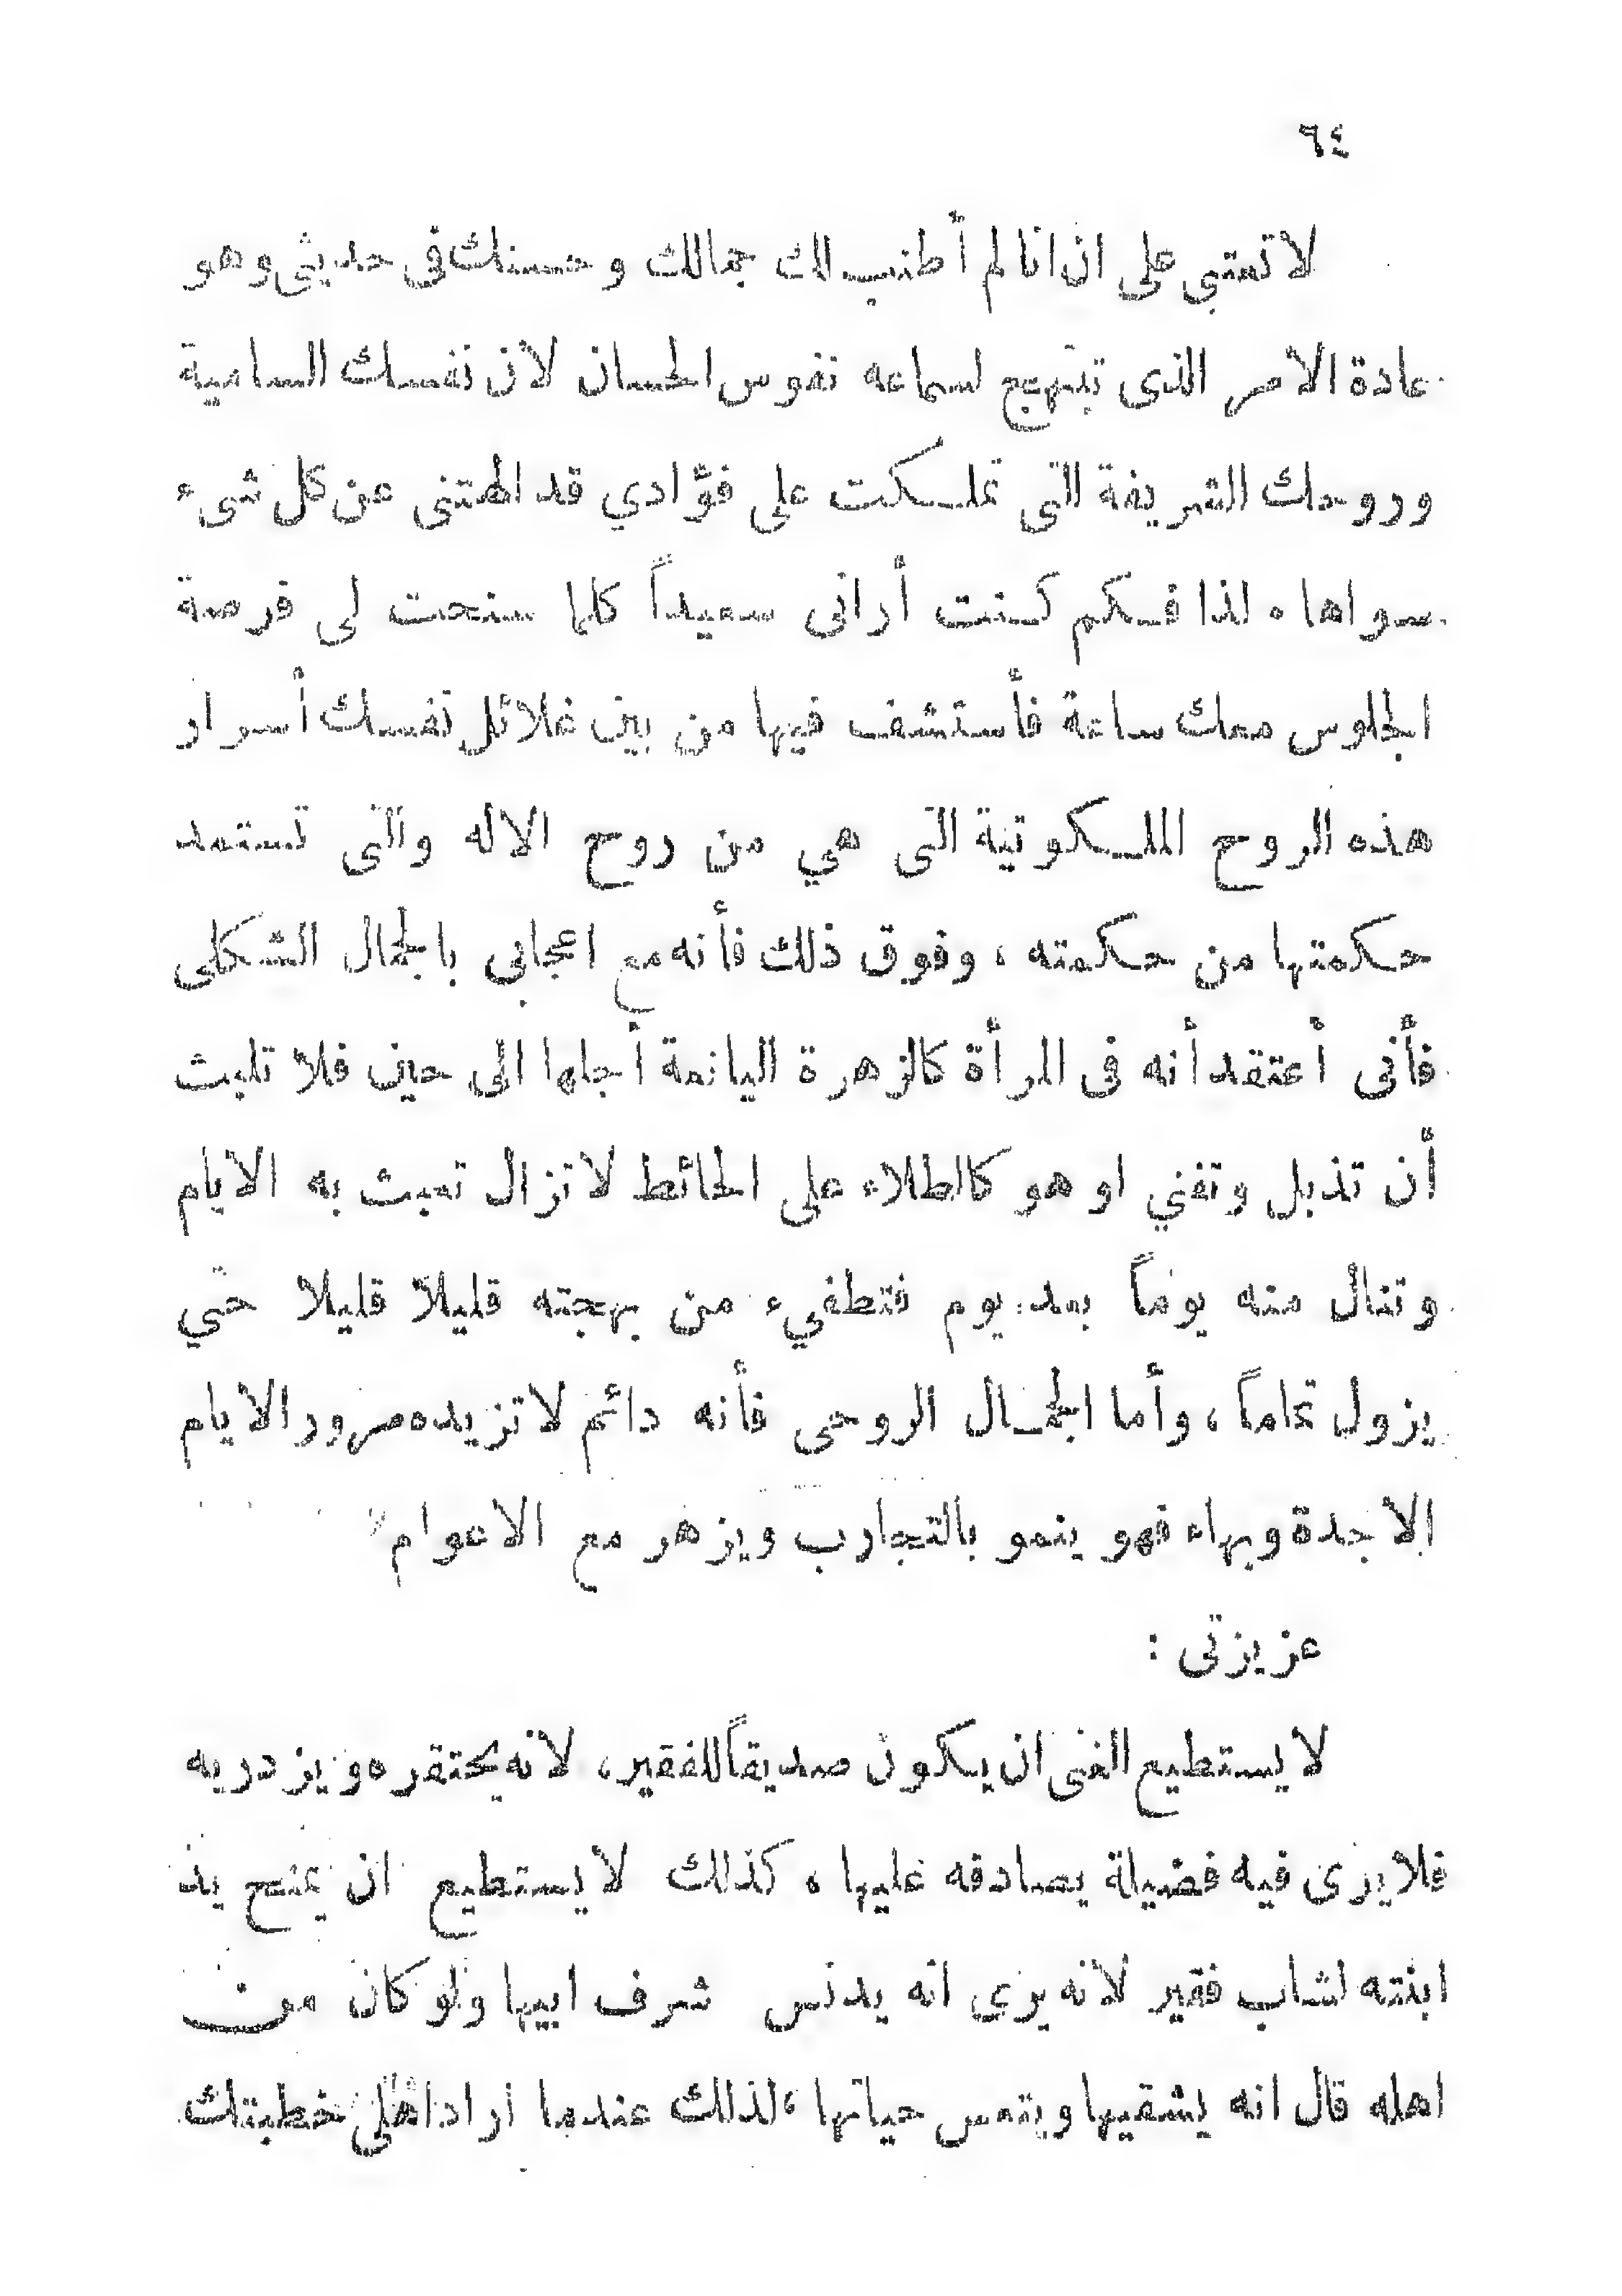 ٩٤
لا تعتبي على ان انا لم أطنب لك جمالك وحسنك فى حديثى وهو
عادة الأمر الذى تبتهج لسماعه نفوس الحسان لأن نفسك السامية
وروحك الشريفة التى تملكت على فؤادي قد الهتنى عن كل شىء
سواها . لذا فكم كنت أرانى سعيداً كلما سنحت لى فرصة
الجلوس معك ساعة فأستشف فيها من بين غلائل نفسك أسرار
هذه الروح الملكوتية التى هي من روح الاله والتى تستمد
حكمتها من حكمته ، وفوق ذلك فأنه مع اعجابى بالجمال الشكلى
فأنى أعتقد أنه فى المرأة كالزهرة اليانعة أجلها الى حين فلا تلبث
أن تذبل وتفني او هو كالطلاء على الحائط لا تزال تعبث به الايام
وتنال منه يوماً بعد يوم فتطفيء من بهجته قليلا قليلا حتي
يزول تماماً ، وأما الجمال الروحى فأنه دائم لا تزيده مرور الايام
الا جدة وبهاء فهو ينمو بالتجارب ويزهر مع الاعوام
عزيزتى :
لا يستطيع الغنى ان يكون صديقاً للفقير ، لانه يحتقره ويزدريه
فلا يرى فيه فضيلة يصادقه عليها ، كذلك لا يستطيع ان يمنح يد
ابنته لشاب فقير لانه يرى انه يدنس شرف ابيها ولو كان من
اهله قال انه يشقيها ويتعس حياتها ، لذلك عندما اراد اهلى خطبتك